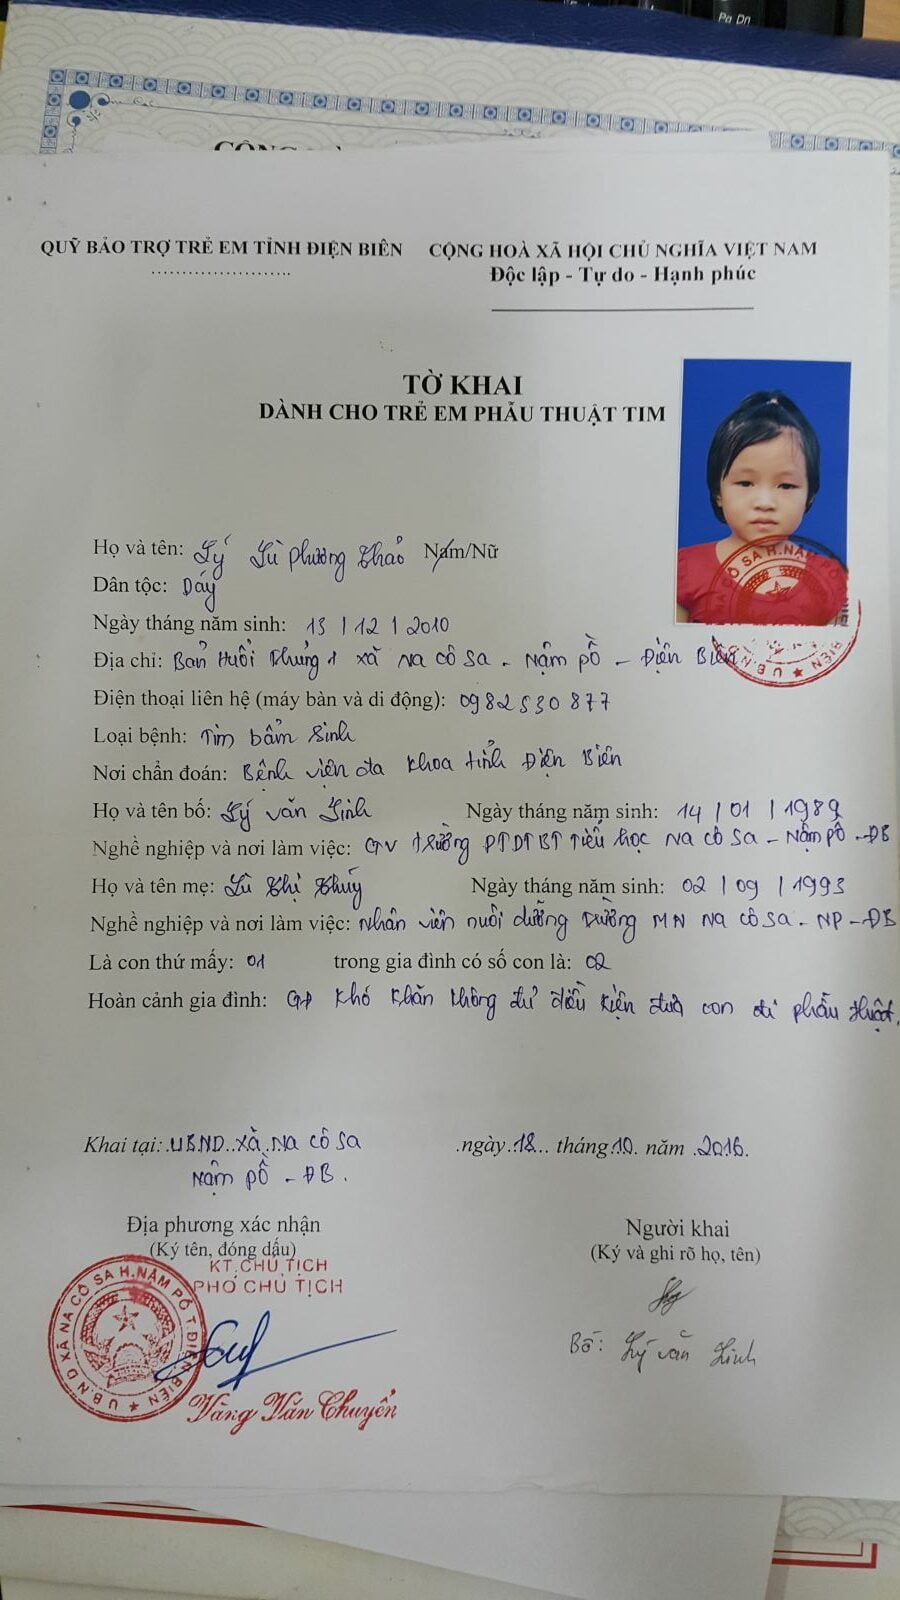 Pa Dn
QUỸ BẢO TRỢ TRẺ EM TỈNH ĐIỆN BIÊN
CỘNG HOÀ XÃ HỘI CHỦ NGHĨA VIỆT NAM
Độc lập - Tự do - Hạnh phúc
TỜ KHAI
DÀNH CHO TRẺ EM PHẪU THUẬT TIM
Họ và tên: Lý Lù Phương Thảo Nam/Nữ
Dân tộc: Dáy
Ngày tháng năm sinh: 13 / 12 / 2010
Địa chỉ: Bản Huổi Thủng 1 xã Na Cô Sa - Nậm Pồ - Điện Biên
Điện thoại liên hệ (máy bàn và di động): 0982530877
Loại bệnh: Tim bẩm sinh
Nơi chẩn đoán: Bệnh viện đa khoa tỉnh Điện Biên
Họ và tên bố: Lý Văn Linh Ngày tháng năm sinh: 14 / 01 / 1989
Nghề nghiệp và nơi làm việc: GV trường PTDTBT Tiểu học Na Cô Sa - Nậm Pồ - ĐB
Họ và tên mẹ: Lù Thị Thúy Ngày tháng năm sinh: 02 / 09 / 1993
Nghề nghiệp và nơi làm việc: Nhân viên nuôi dưỡng Trường MN Na Cô Sa - NP - ĐB
Là con thứ mấy: 01 trong gia đình có số con là: 02
Hoàn cảnh gia đình: GĐ khó khăn không đủ điều kiện đưa con đi phẫu thuật.
Khai tại: UBND xã Na Cô Sa ngày 18 tháng 10 năm 2016.
Nậm Pồ - ĐB.
Địa phương xác nhận
(Ký tên, đóng dấu)
KT. CHỦ TỊCH
PHÓ CHỦ TỊCH
U.B.N.D XÃ NA CÔ SA H. NẬM PỒ T. ĐIỆN BIÊN
Vàng Văn Chuyển
Người khai
(Ký và ghi rõ họ, tên)
Bố: Lý Văn Linh